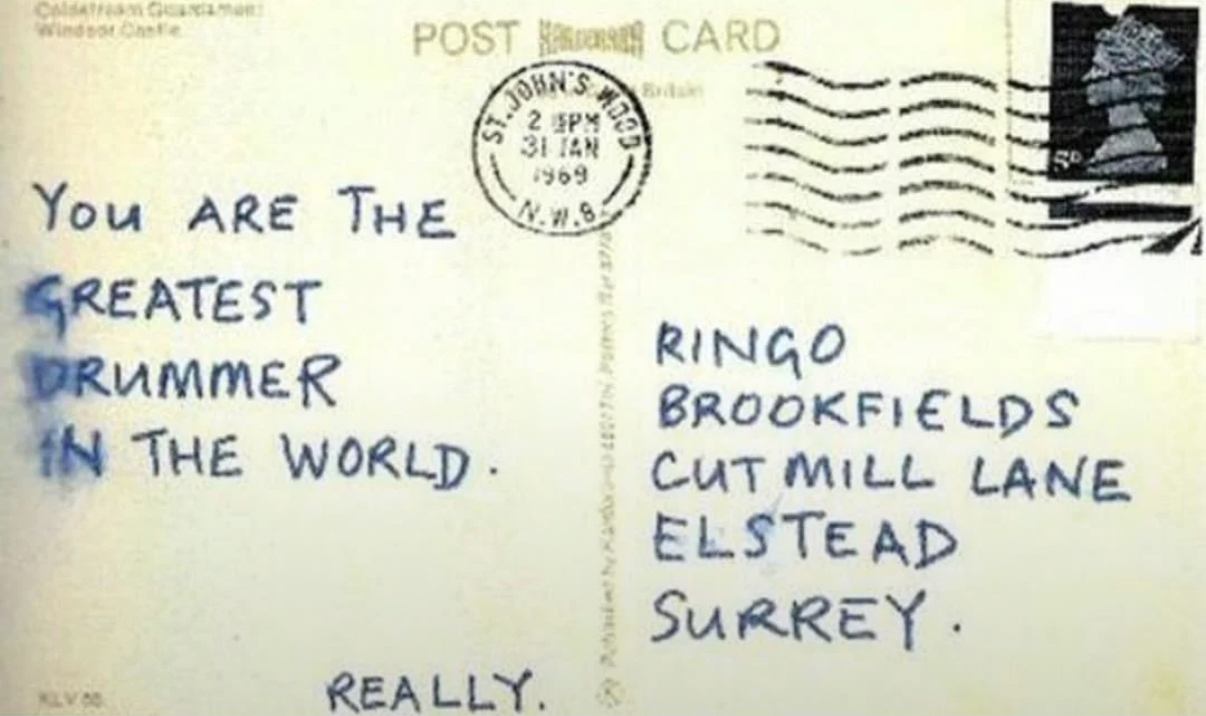 Coldstream Guardsmen
Windsor Castle
POST CARD
ST. JOHN'S WOOD
31 JAN
1969
N.W.8.
5D
YOU ARE THE
GREATEST
DRUMMER
IN THE WORLD.
REALLY.
RINGO
BROOKFIELDS
CUT MILL LANE
ELSTEAD
SURREY.